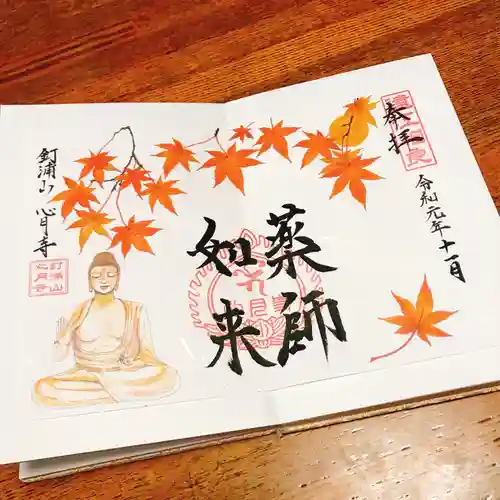 奉拝
令和元年十一月
薬師
如来
釘浦山 心月寺